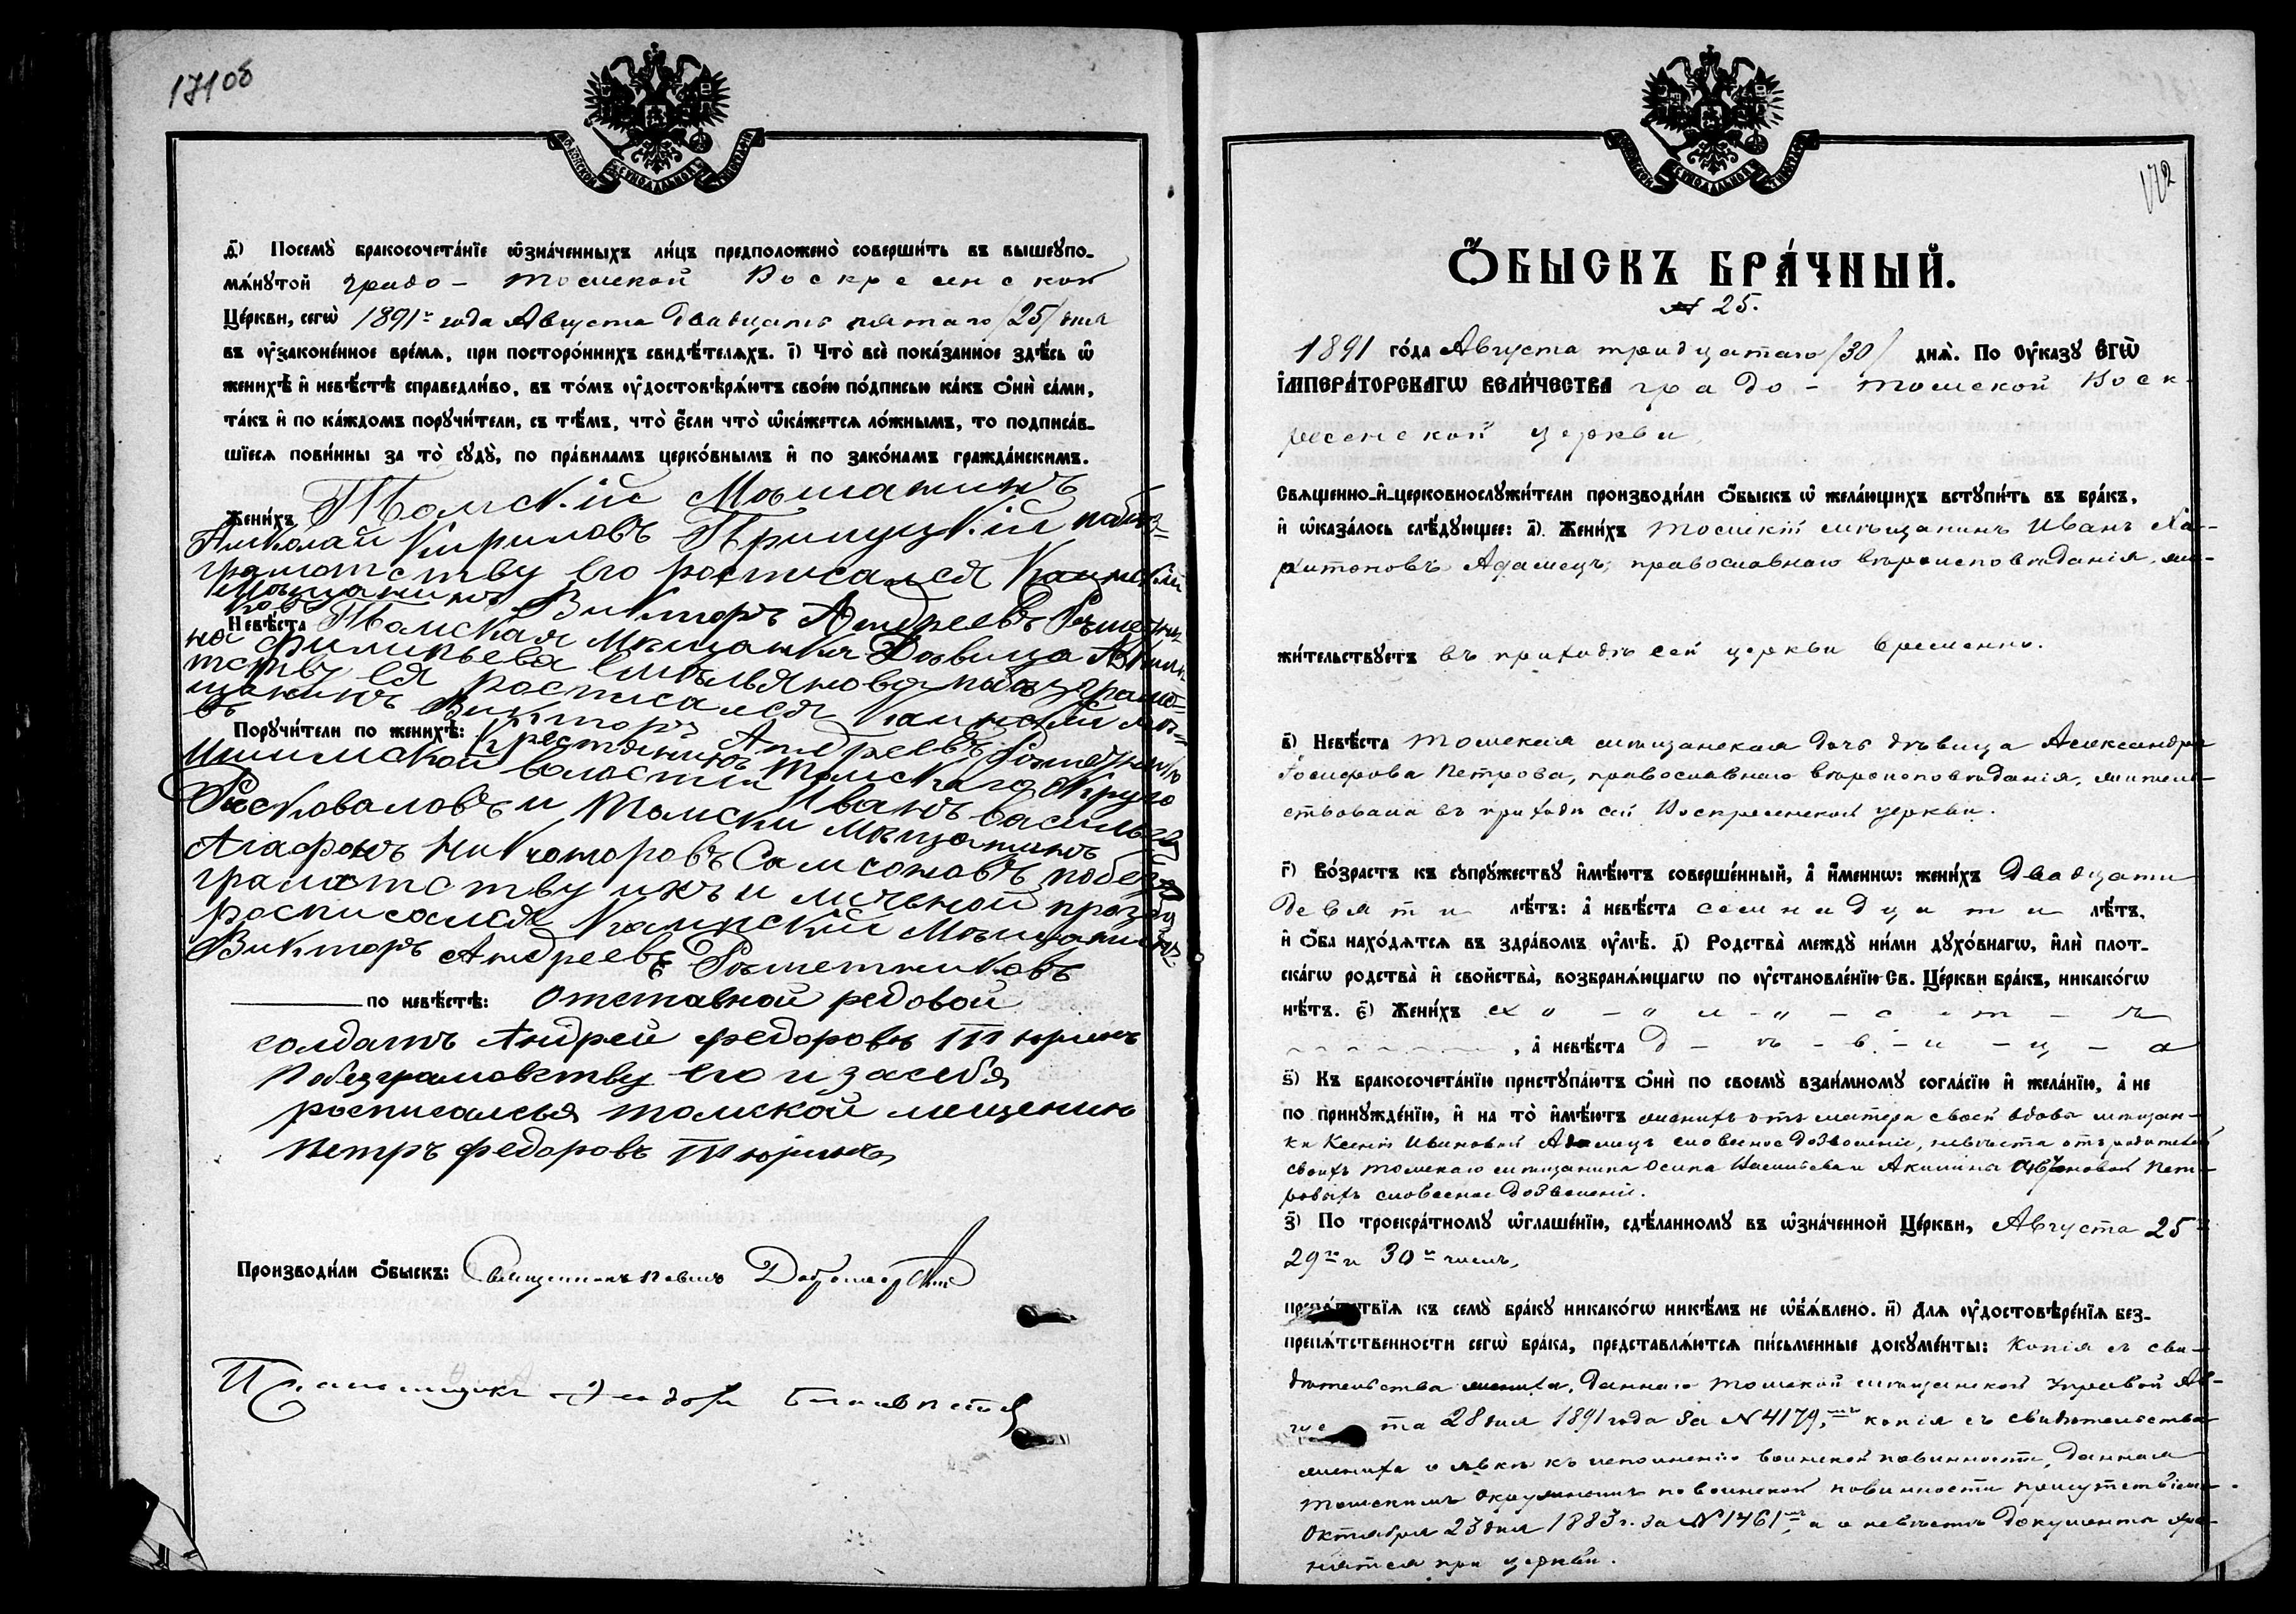 171об
д҃) Посемꙋ̀ бракосочета́нїе ѡ҆зна́ченныхъ ли́цъ предположено̀ соверши́ть въ вышеꙋпо-
мѧ́нꙋтой градо-Томской Воскресенской
Це́ркви, сегѡ̀ 1891го года Августа двадцать пятаго /25/ дня
въ ᲂу҆зако́ненное вре́мѧ, при посторо́ннихъ свидѣ́телѧхъ. і҃) Что̀ всѐ пока́занное здѣ́сь ѡ҆
женихѣ̀ и҆ невѣ́стѣ справедли́во, въ то́мъ ᲂу҆достовѣрѧ́ютъ свое́ю по́дписью ка́къ ѻ҆нѝ са́ми,
та́къ и҆ по ка́ждомъ порꙋчи́тели, съ тѣ́мъ, что̀ є҆́сли что̀ ѡ҆ка́жетсѧ ло́жнымъ, то подписа́в-
шїесѧ пови́нны за то̀ сꙋдꙋ̀, по пра́виламъ церко́внымъ и҆ по зако́намъ гражда́нскимъ.
Жени́хъ Томскій Мѣщанинъ
Николай Кириловъ Прилуцкій побез=
грамотству его росписался Каинскій
Мѣщанинъ Викторъ Андреевъ Рѣшетни
ковъ
Невѣ́ста Томская мѣщанка Дѣвица Акили
на Филипьева Емельянова побезграмо=
тству ея росписался Каинскій мѣ=
щанинъ Викторъ Андреевъ Рѣшетнико
въ
Порꙋчи́тели по женихѣ̀: Крестьянинъ Томскаго Округа
Ишимской волости Иванъ Васильевъ
Росковаловъ и Томски Мѣщанинъ
Агафонъ Никоноровъ Самсоновъ побез
грамотству ихъ и личной прозбѣ
росписался Каинский Мѣщанинъ
Викторъ Андреевъ Рѣшетниковъ
по невѣ́стѣ: Отставной редовой
солдатъ Андрей Федоровъ Тюринъ
побезграмовству его и засебя
росписалься томской мещенинъ
Петръ Федоровъ Тюринъ
Производи́ли ѻ҆́быскъ: Священникъ Павелъ
172
Ѻ҆БЫСКЪ БРА́ЧНЫЙ.
№ 25.
1891 го́да Августа тридцатаго /30/ днѧ̀. По Оу҆ка́зꙋ Є҆гѡ̀
І҆мпера́торскагѡ Вели́чества градо-Томской Воск-
ресенской церкви
Свѧщенно-и҆-церковнослꙋжи́тели производи́ли ѻ҆́быскъ ѡ҆ жела́ющихъ встꙋпи́ть въ бра́къ,
и҆ ѡ҆каза́лось слѣ́дꙋющее: а҃) Жени́хъ Томскій мѣщанинъ Иванъ Ха-
ритоновъ Адамецъ, православнаго вѣроисповѣданія, жи-
жи́тельствꙋетъ въ приходѣ сей церкви временно.
в҃) Невѣ́ста Томская мѣщанская дочь дѣвица Александра
Іосифова Петрова, православнаго вѣроисповѣданія, житель-
ствовала въ приходѣ сей Воскресенской церкви.
г҃) Во́зрастъ къ сꙋпрꙋ́жествꙋ и҆мѣ́ютъ соверше́нный, а҆ и҆́меннѡ: жени́хъ двадцати
девяти лѣ́тъ: а҆ невѣ́ста семнадцати лѣ́тъ,
и҆ ѻ҆́ба нахо́дѧтсѧ въ здра́вомъ ᲂу҆мѣ̀. д҃) Родства̀ междꙋ̀ ни́ми дꙋхо́внагѡ, и҆лѝ плот-
ска́гѡ родства̀ и҆ сво́йства, возбранѧ́ющагѡ по ᲂу҆становле́нїю Св. Це́ркви бра́къ, никако́гѡ
нѣ́тъ. є҃) Жени́хъ холостъ
, а҆ невѣ́ста д - ѣ - в - и - ц - а
ѕ҃) Къ бракосочета́нїю пристꙋпа́ютъ ѻ҆нѝ по своемꙋ̀ взаи́мномꙋ согла́сїю и҆ жела́нїю, а҆ не
по принꙋжде́нїю, и҆ на то̀ и҆мѣ́ютъ женихъ отъ матери своей вдовы мѣщан-
ки Ксеніи Ивановой Адамецъ словесное дозволеніе, невѣста отъ родителей
своихъ Томскаго мѣщанина Осипа Васильева и Акилины Петр-
ровыхъ словесное дозволеніе.
з҃) По троекра́тномꙋ ѡ҆глаше́нїю, сдѣ́ланномꙋ въ ѡ҆зна́ченной Це́ркви, Августа 25го
29го и 30го числъ,
препѧ́тствїѧ къ семꙋ̀ бра́кꙋ никако́гѡ никѣ́мъ не ѡ҆б̾ѧ́влено. и҃) Длѧ ᲂу҆достовѣре́нїѧ без-
препѧ́тственности сегѡ̀ бра́ка, представлѧ́ютсѧ пи́сьменные докꙋме́нты: копія съ сви-
дѣтельства жениха, даннаго Томской мѣщанской управой Ав-
густа 28 дня 1891 года за №4179, копія съ свидѣтельства
жениха о явкѣ къ исполненію воинской повинности, данная
Томскимъ окружнымъ по воинской повинности присутствіемъ
Октября 23 дня 1883 г. за №1461, а о невѣстѣ документы хра-
нятся при церкви.